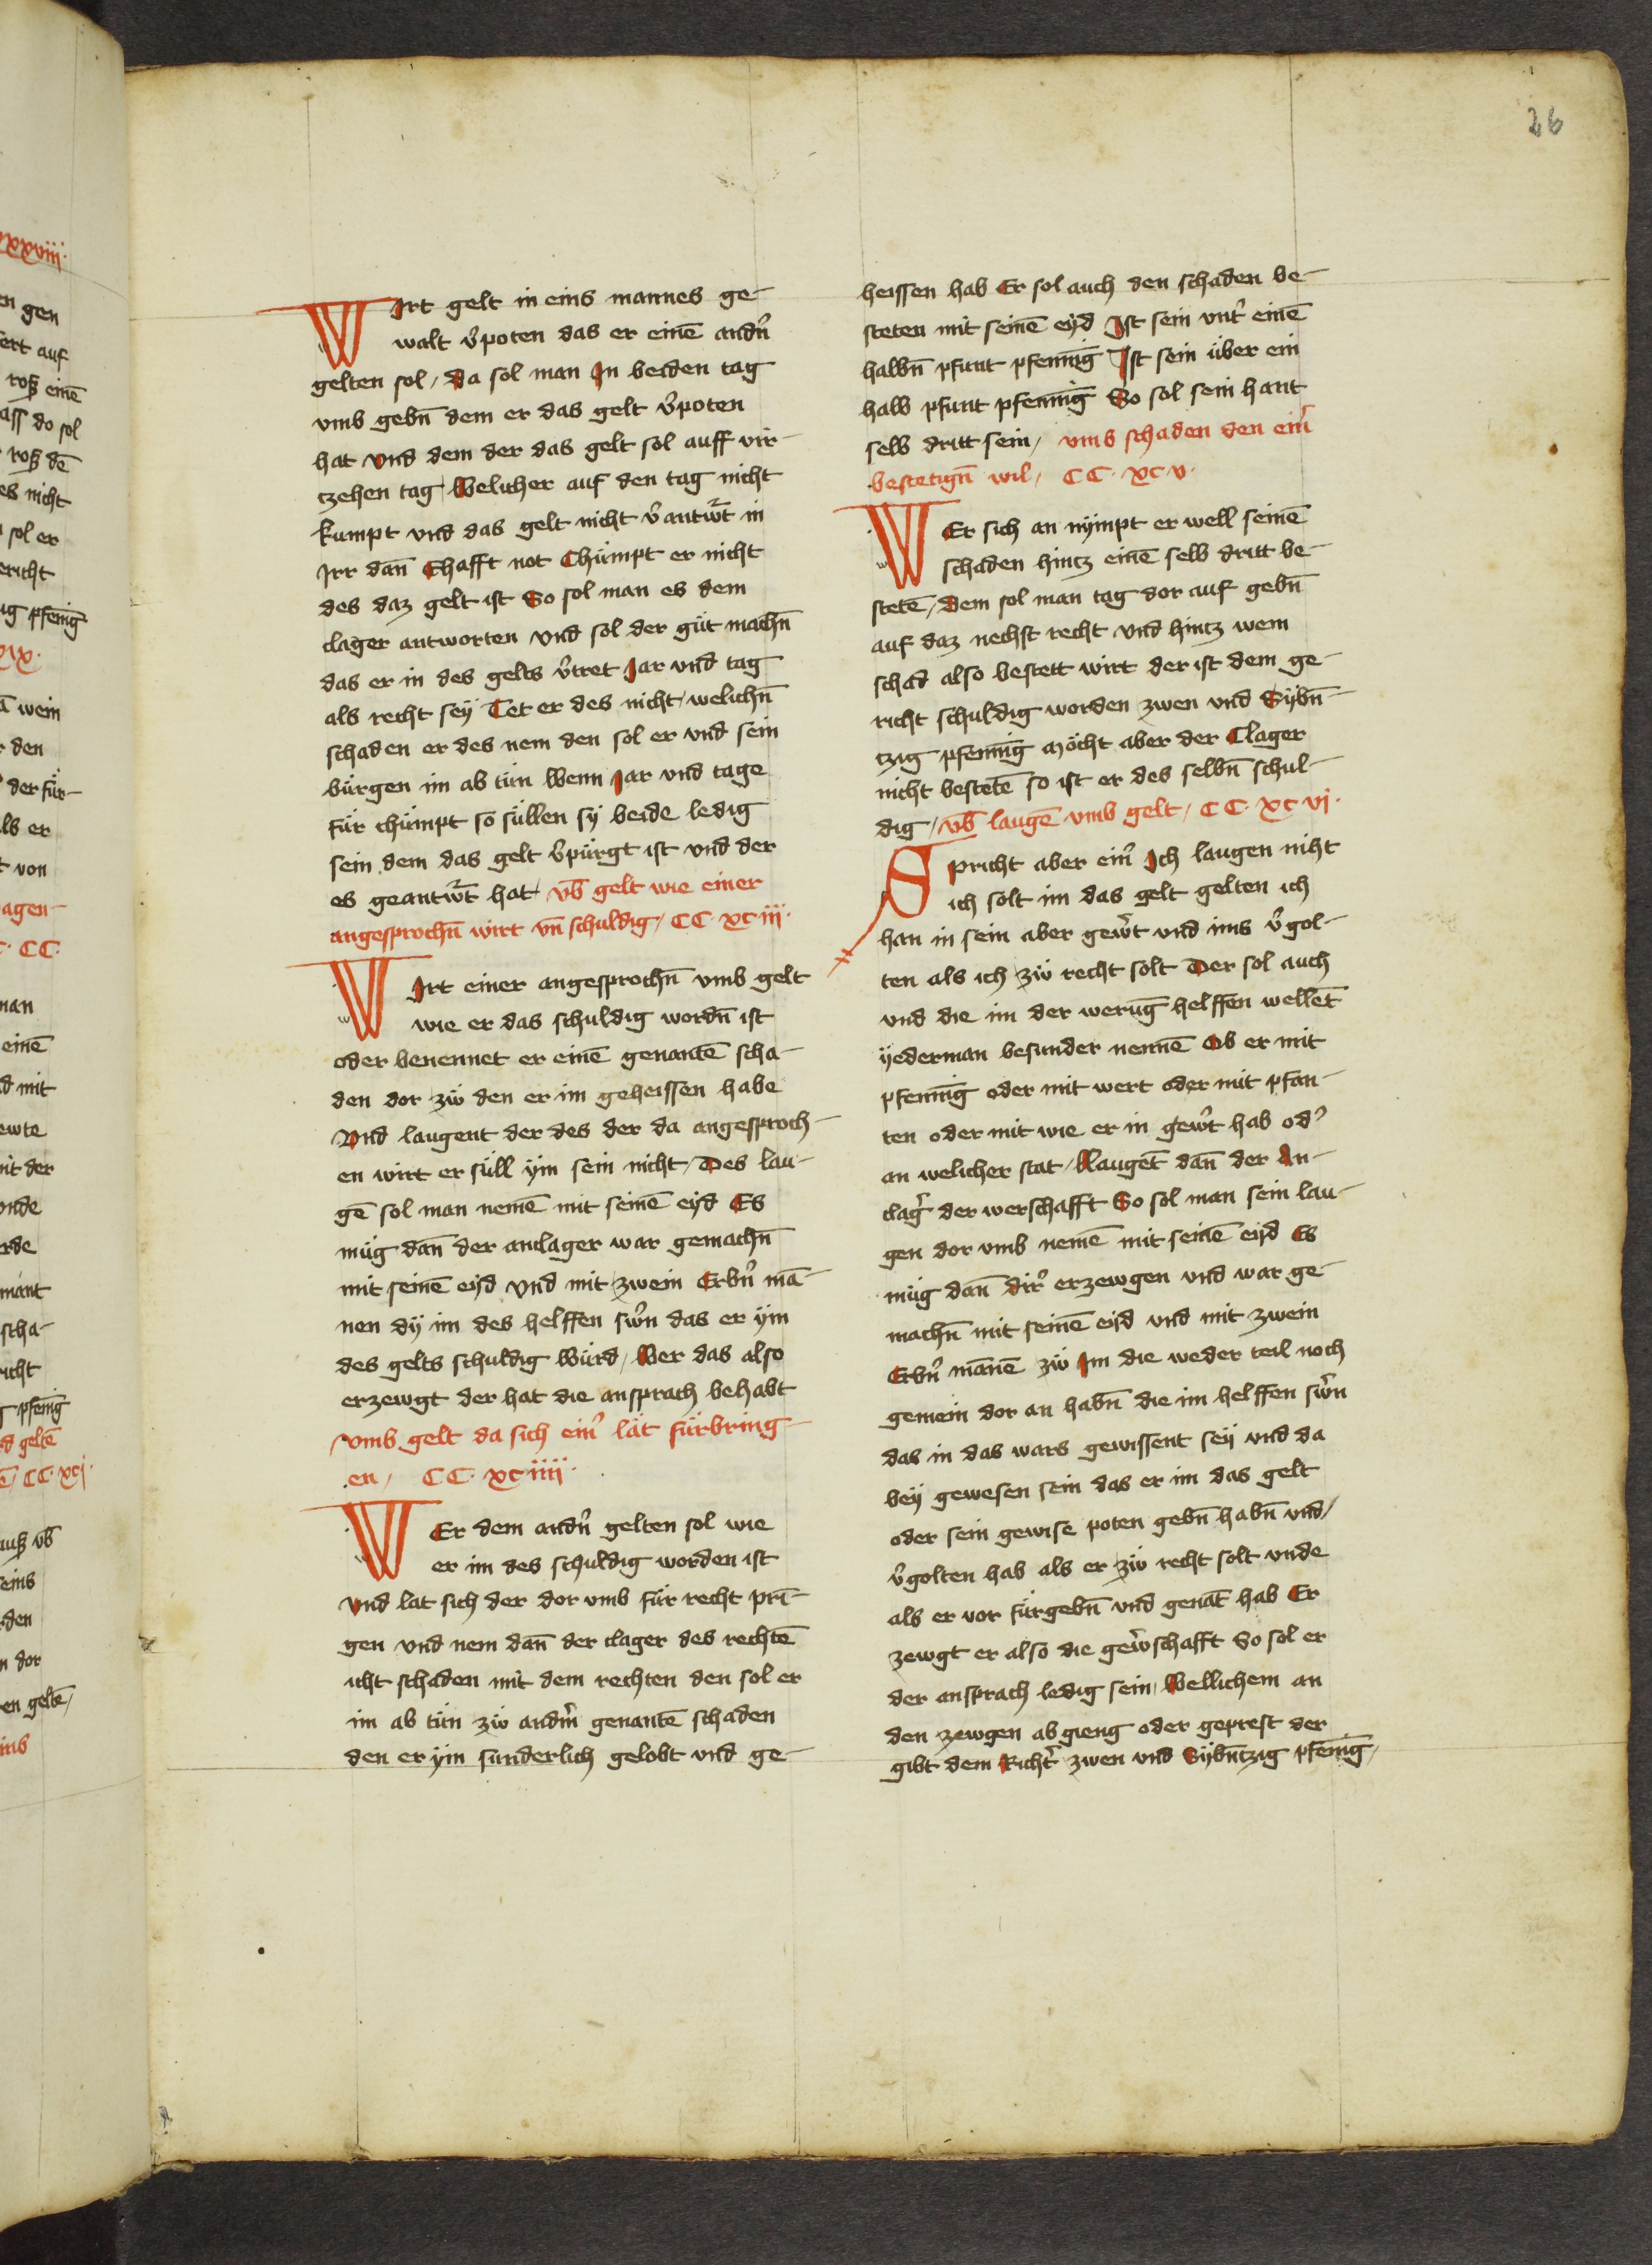 26
WIrt gelt in eins mannes ge-
walt v̉poten das er einē andn̉
gelten sol / da sol man In beiden tag
vmb gebn̄ dem er das gelt v̉poten
hat vnd dem der das gelt sol auff vir-
czehen tag Welicher auf den tag nicht
kumpt vnd das gelt nicht v̉antw̉t in
Irr dañ Ehafft not Chümpt er nicht
des daz gelt ist So sol man es dem
clager antworten vnd sol der güt machn̄
das er in des gelts v̉tret Jar vnd tag
als recht seÿ Tet er des nicht / welichn̄
schaden er des nem den sol er vnd sein
bürgen im ab tün Wenn Jar vnd tage
für chümpt so süllen sÿ beide ledig
sein dem das gelt v̉pürgt ist vnd der
es geantw̉t hat / vb̄ gelt wie einer
angesprochn̄ wirt vn̄ schuldig / CC · xc · iii ·
WIrt einer angesprochn̄ vmb gelt
wie er das schuldig wordn̄ ist
oder benennet er einē genantē scha-
den dor zü den er im geheissen habe
Vnd laugent der des der da angesproch-
en wirt er süll ÿm sein nicht / Des lau-
gē sol man nemē mit seinē eÿd Es
müg dañ der anclager war gemachn̄
mit seinē eÿd vnd mit zwein Erbn̉ mā-
nen dÿ im des helffen sw̉n das er ÿm
des gelts schuldig Würd / Wer das also
erzewgt der hat die ansprach behabt
vmb gelt da sich ein̉ lät fürbring-
en / CC · xc iiii ·
WEr dem andn̉ gelten sol wie
er im des schuldig worden ist
vnd lat sich der dor vmb für recht prī-
gen vnd nem dañ der clager des rechtē
icht schaden mit dem rechten den sol er
im ab tün zü andm̉ genantē schaden
den er ÿm sunderlich gelobt vnd ge-
heissen hab Er sol auch den schaden be-
steten mit seinē eÿd Ist sein vnt̉ einē
halbn̄ pfunt pfenniḡ Ist sein über ein
halb pfunt pfenniḡ So sol sein hant
selb dritt sein / vmb schaden den ein̉
bestetign̄ wil / CC · xc · v ·
WEr sich an nÿmpt er well seinē
schaden hintz einē selb dritt be-
stetē / Dem sol man tag dor auf gebn̄
auf daz nechst recht vnd hintz wem
schad also bestett wirt der ist dem ge-
richt schuldig worden zwen vnd Sÿbn̄-
tzig pfenniḡ Möcht aber der Clager
nicht bestetē so ist er des selbn̄ schul-
dig / vb̄ laugē vmb gelt / CC · xc vj ·
SPricht aber ein̉ Ich laugen niht
ich solt im das gelt gelten ich
han in sein aber gew̉t vnd ims v̉gol-
ten als ich zü recht solt Der sol auch
vnd die im der weruḡ helffen wellēt
ÿederman besunder nennē Ob er mit
pfenniḡ oder mit wert oder mit pfan-
ten oder mit wie er in gew̉t hab od̉
an welicher stat / Laugēt dañ der An-
clag̉ der werschafft So sol man sein lau-
gen dor vmb nemē mit seinē eÿd Es
müg dañ dir̉ erzewgen vnd war ge-
machn̄ mit seinē eÿd vnd mit zwein
Erbn̉ mānē zü Im die weder teil noch
gemein dor an habn̄ die im helffen sw̉n
das in das wars gewissent seÿ vnd da
beÿ gewesen sein das er im das gelt
oder sein gewise poten gebn̄ habn̄ vnd /
v̉golten hab als er zü recht solt vnde
als er vor fürgebn̄ vnd genāt hab Er
zewgt er also die gew̉schafft So sol er
der ansprach ledig sein / Wellichem an
den zewgen ab gieng oder geprest der
gibt dem Richt̉ zwen vnd Sÿbn̄tzig pfeniḡ /